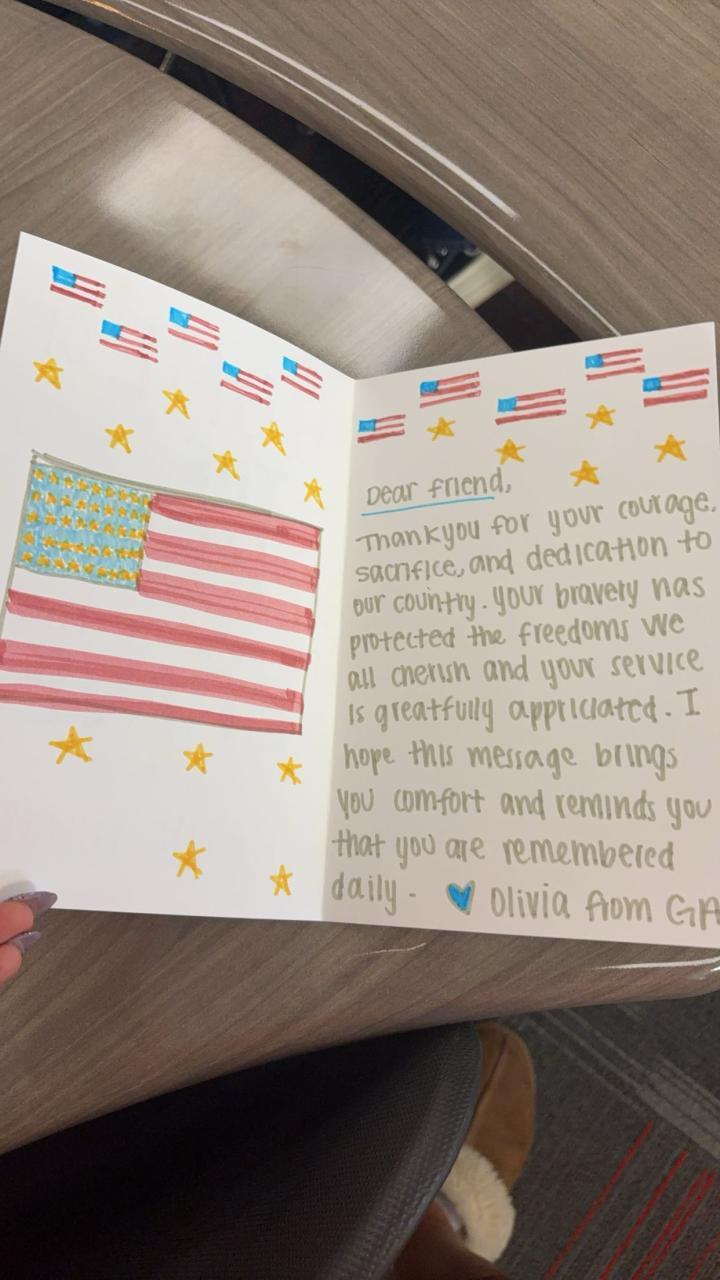 Dear friend,
Thankyou for your courage,
sacrifice, and dedication to
our country. your bravery has
protected the freedoms we
all cherish and your service
is greatfully appriciated. I
hope this message brings
you comfort and reminds you
that you are remembered
daily - Olivia from GA